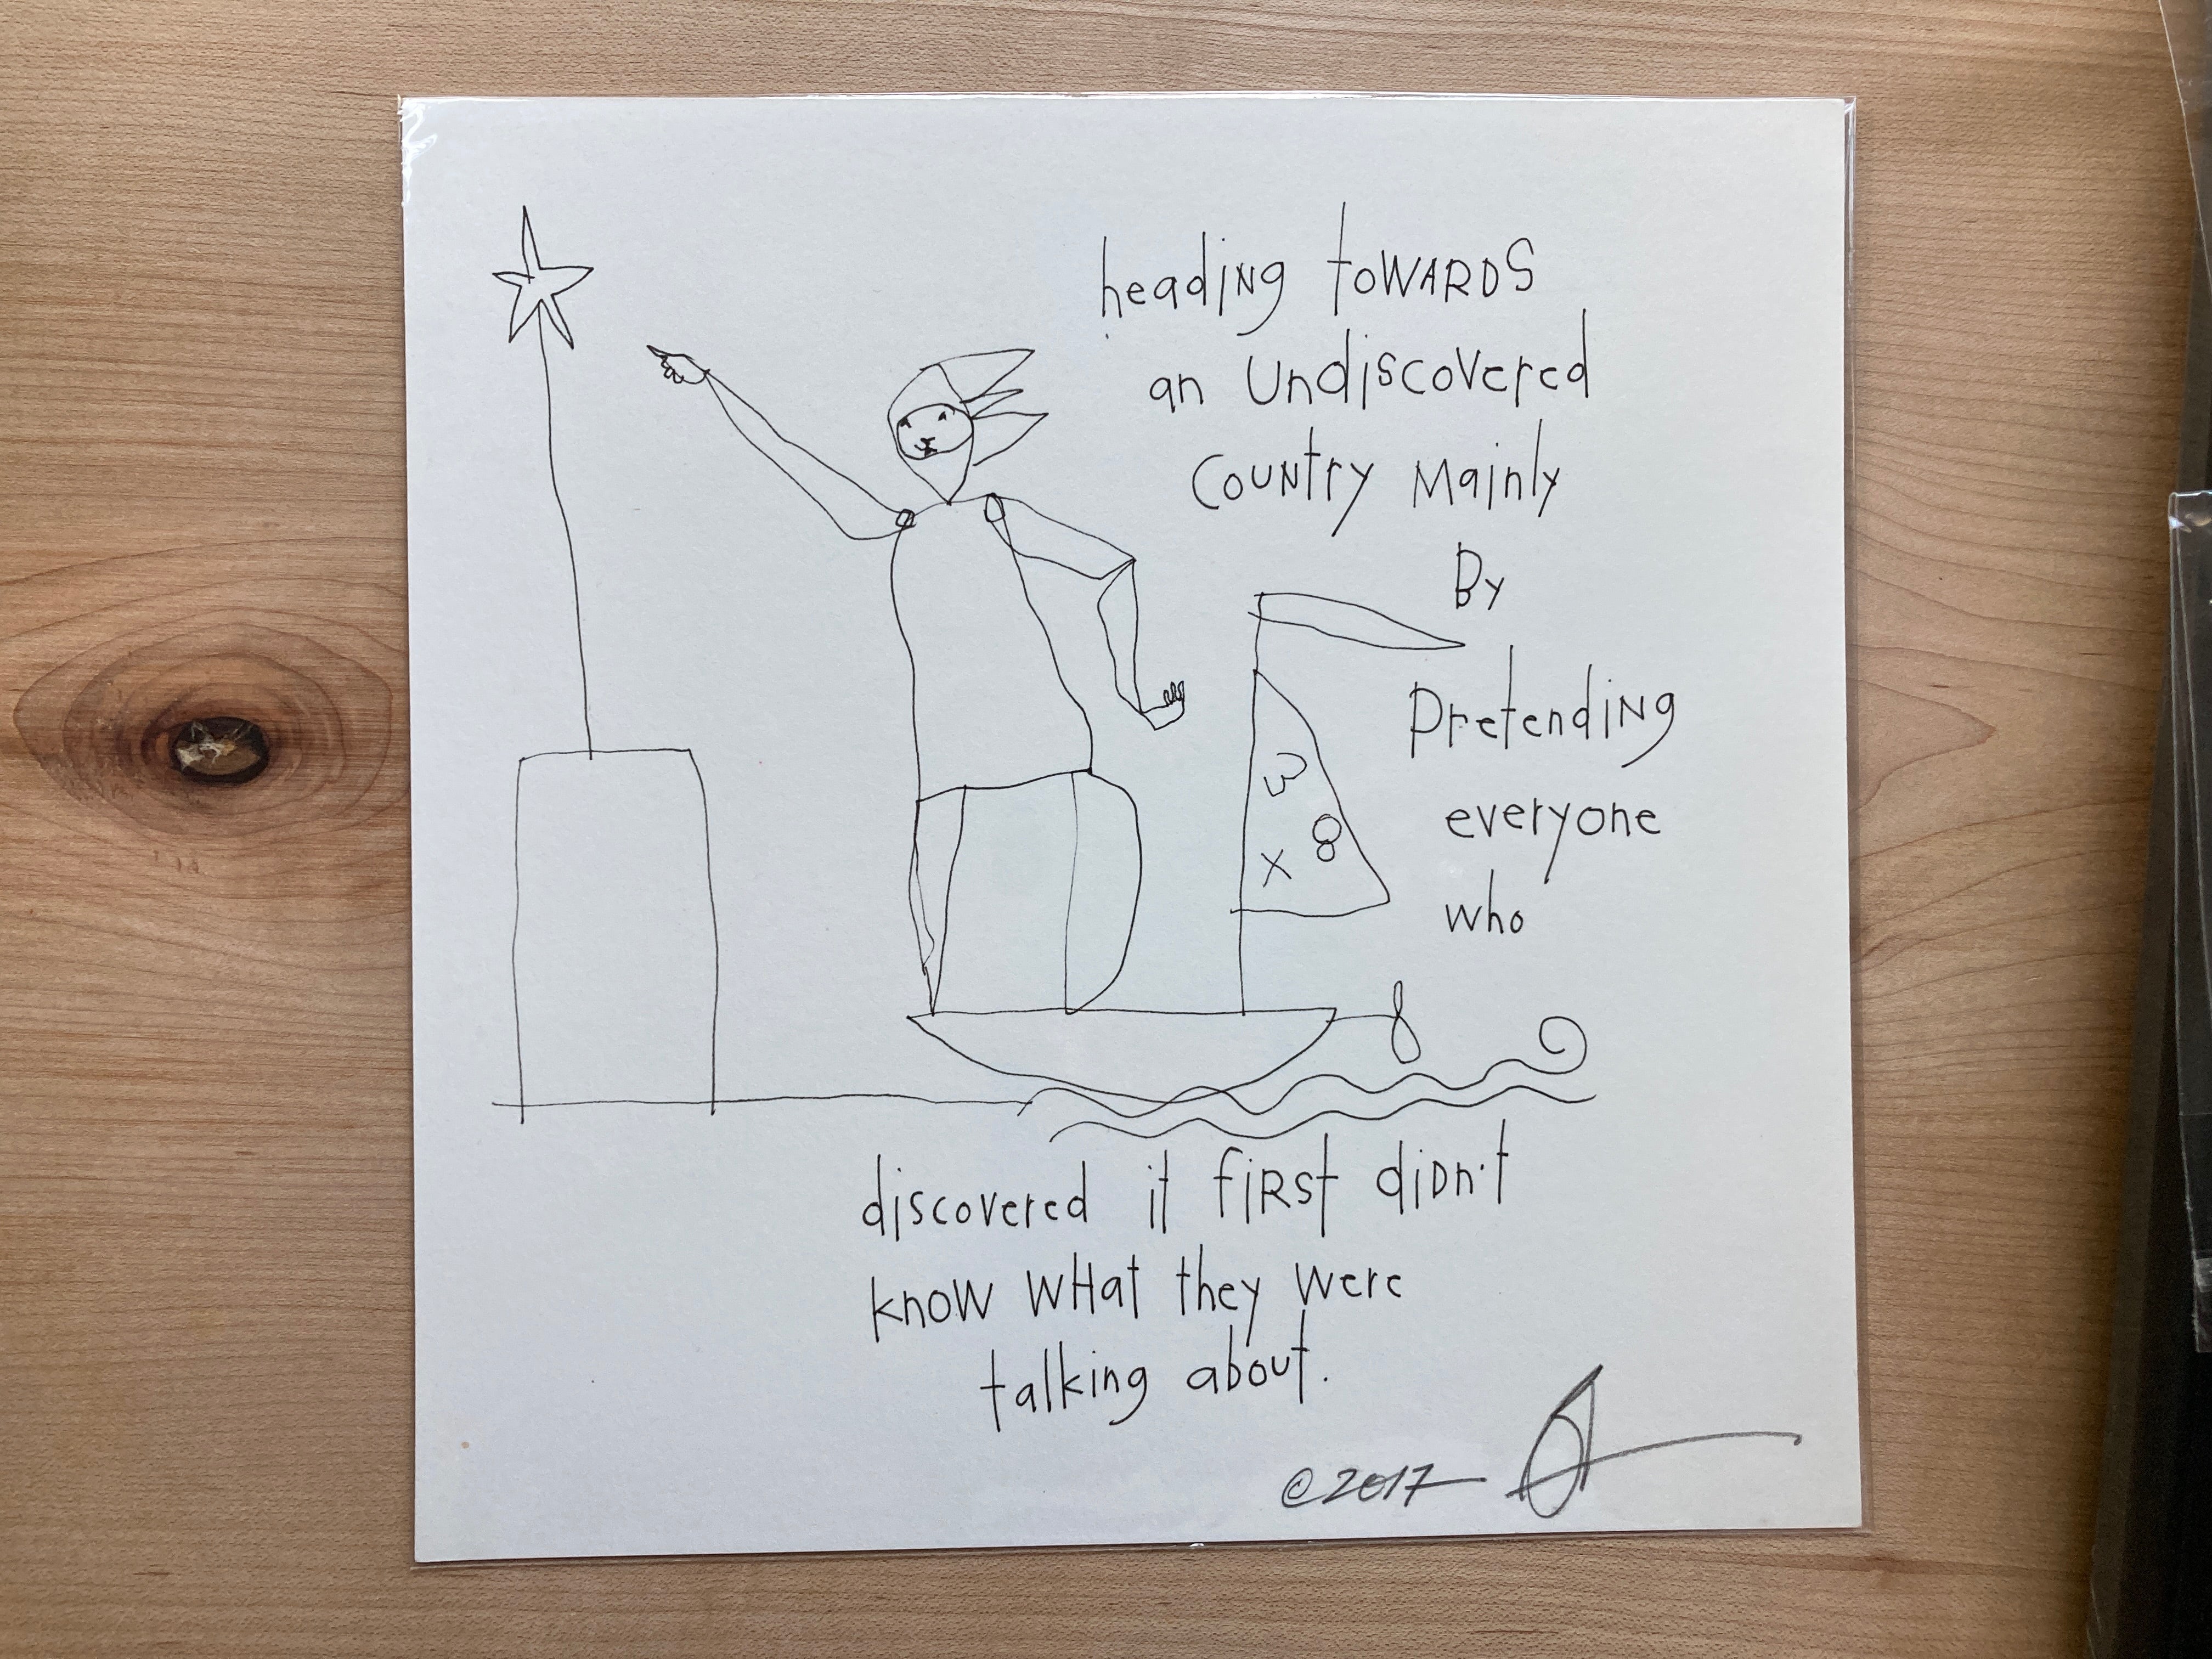 heading towards
an undiscovered
country mainly
By
pretending
everyone
who
3
8
x
discovered it first didn't
know what they were
talking about.
©2017